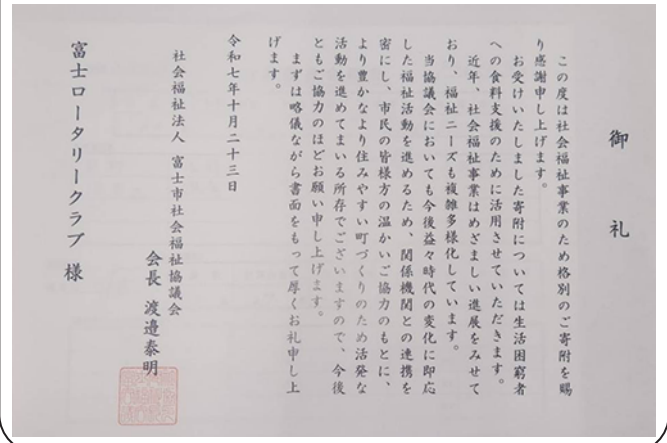 御礼
この度は社会福祉事業のため格別のご寄附を賜
り感謝申し上げます。
お受けいたしました寄附については生活困窮者
への食料支援のために活用させていただきます。
近年、社会福祉事業はめざましい進展をみせて
おり、福祉ニーズも複雑多様化しています。
当協議会においても今後益々時代の変化に即応
した福祉活動を進めるため、関係機関との連携を
密にし、市民の皆様方の温かいご協力のもとに、
より豊かなより住みやすい町づくりのため活発な
活動を進めてまいる所存でございますので、今後
ともご協力のほどお願い申し上げます。
まずは略儀ながら書面をもって厚くお礼申し上
げます。
令和七年十月二十三日
社会福祉法人 富士市社会福祉協議会
会長 渡邉泰明
富士ロータリークラブ 様